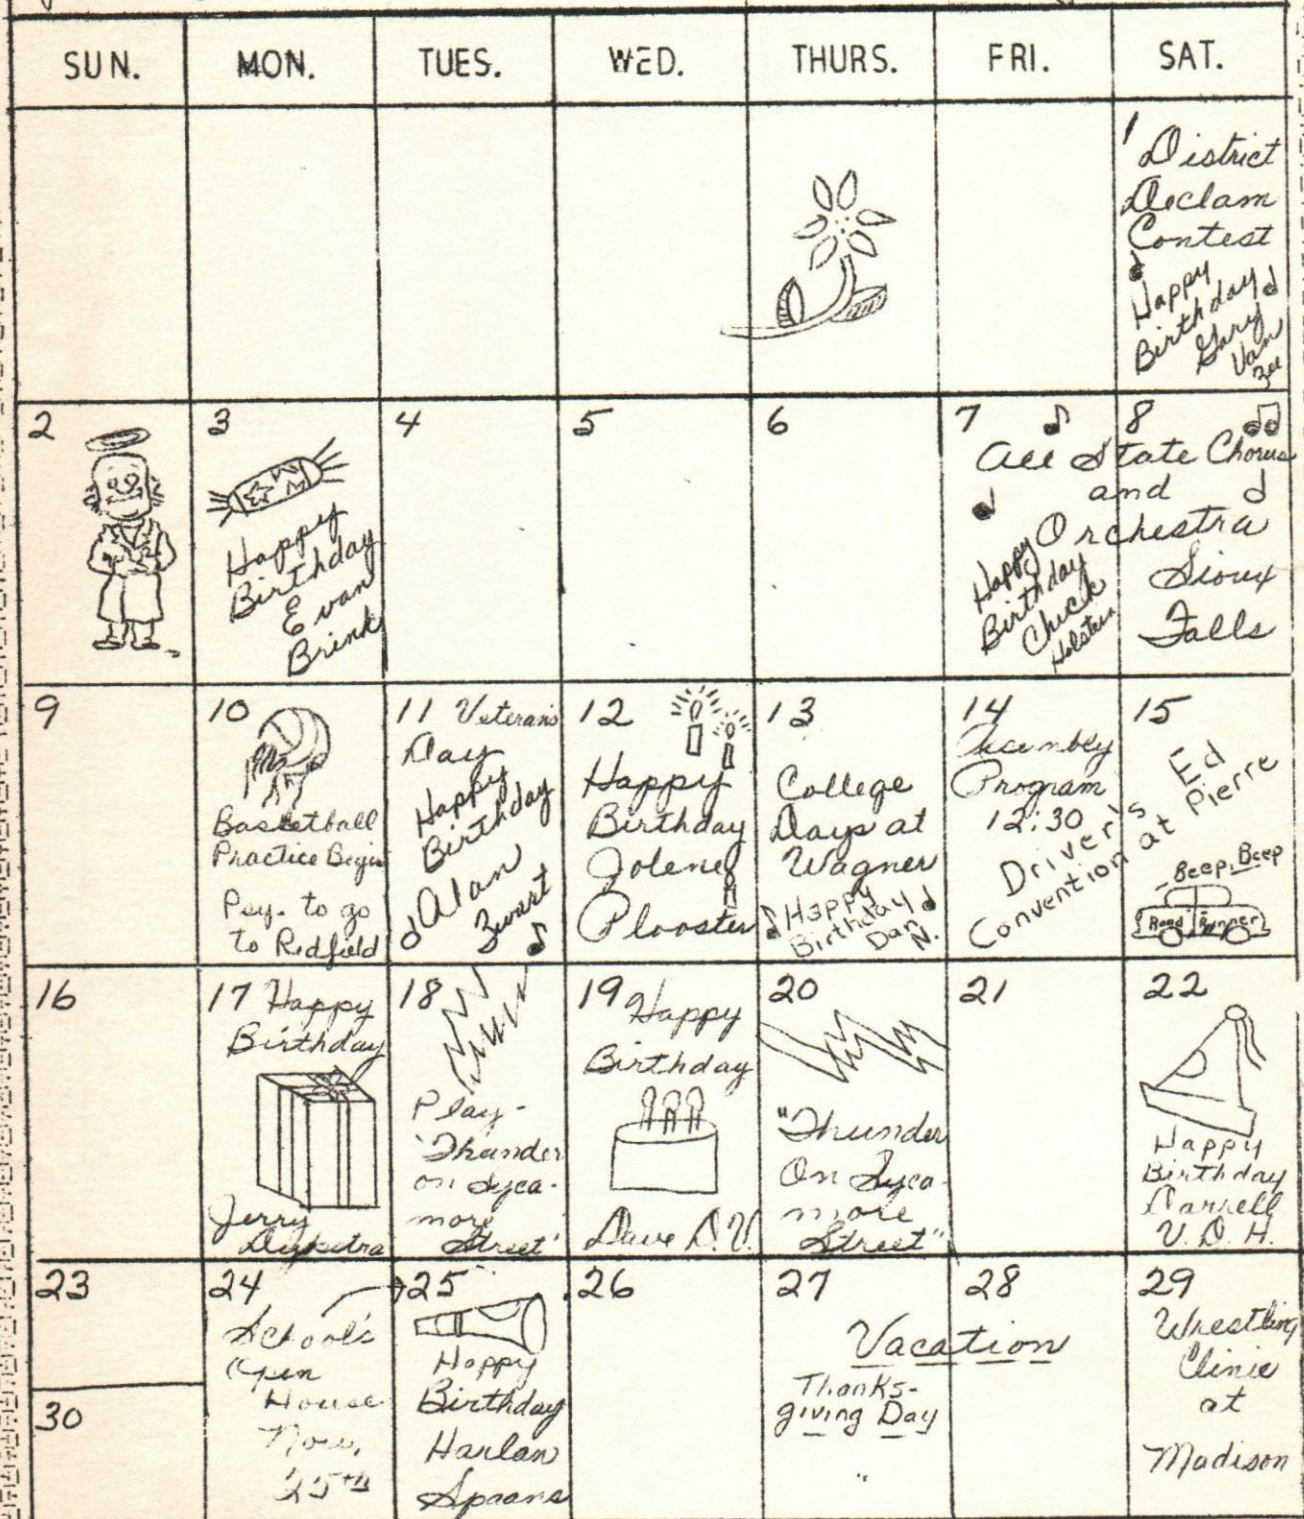 SUN. MON. TUES. WED. THURS. FRI. SAT.
1 District
Declam
Contest
Happy
Birthday
Gary
Van
Zee
2
3
Happy
Birthday
Evan
Brink
4
5
6
7 8
All State Chorus
and
Orchestra
Sioux
Falls
Happy
Birthday
Chuck
Holstein
9
10
Basketball
Practice Begin
Psy. to go
to Redfield
11 Veteran's
Day
Happy
Birthday
Alan
Zwart
12
Happy
Birthday
Jolene
Plooster
13
College
Days at
Wagner
Happy
Birthday
Dan
N.
14
Program
12:30
15
Driver's Ed
Convention at Pierre
Beep, Beep
Road Runner
16
17 Happy
Birthday
Jerry
Dykstra
18
Play-
'Thunder
on Syca-
more
Street'
19 Happy
Birthday
Dave D.V.
20
"Thunder
On Syca-
more
Street"
21
22
Happy
Birthday
Darrell
V.D.H.
23
24
School's
Open
House
Nov.
25th
25
Happy
Birthday
Harlan
Spaans
26
27 28
Vacation
Thanks-
giving Day
29
Wrestling
Clinic
at
Madison
30